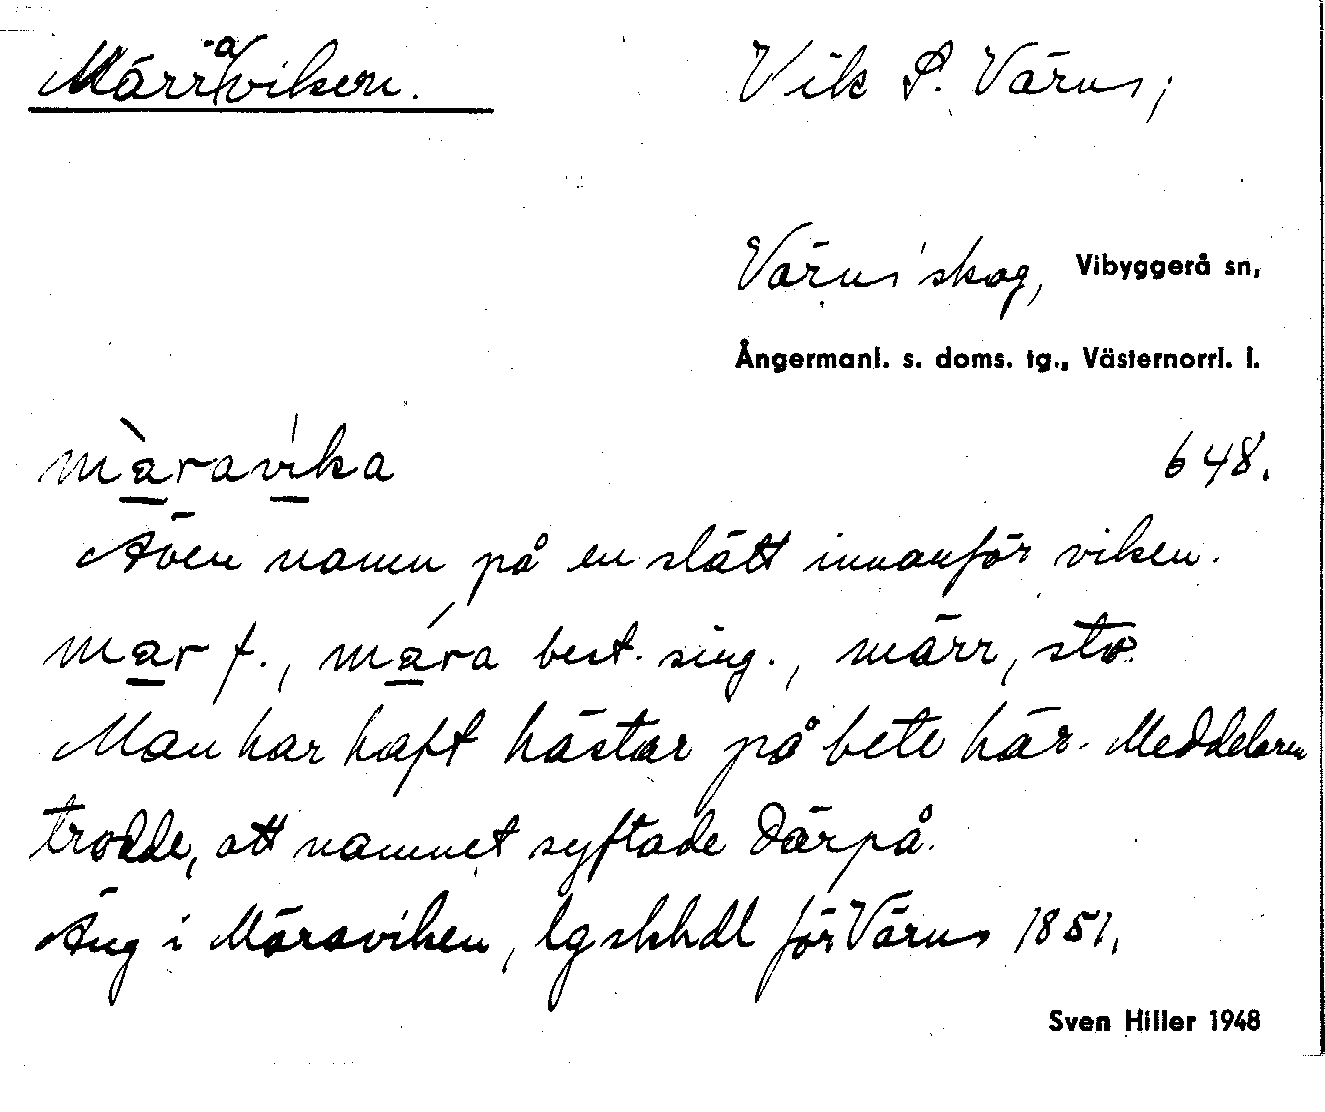 Märraviken. Vik S. Värns;
Värns' skog, Vibyggerå sn,
Ångermanl. s. doms. tg., Västernorrl. l.
màravíka 648.
Även namn på en slätt innanför viken.
mar f., mára best. sing., märr, sto.
Man har haft hästar på bete här. Meddelaren
trodde, att namnet syftade därpå.
Äng i Märaviken, lgskhdl för Värns 1851.
Sven Hiller 1948